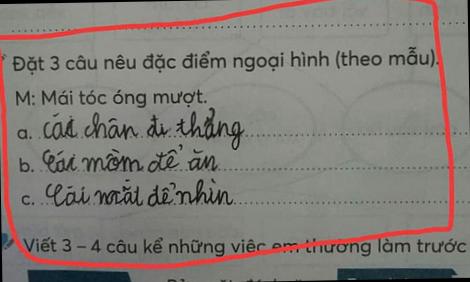 Đặt 3 câu nêu đặc điểm ngoại hình (theo mẫu).
M: Mái tóc óng mượt.
a. cái chân đi thẳng
b. Cái mồm để ăn
c. Cái mắt để nhìn
Viết 3 – 4 câu kể những việc em thường làm trước